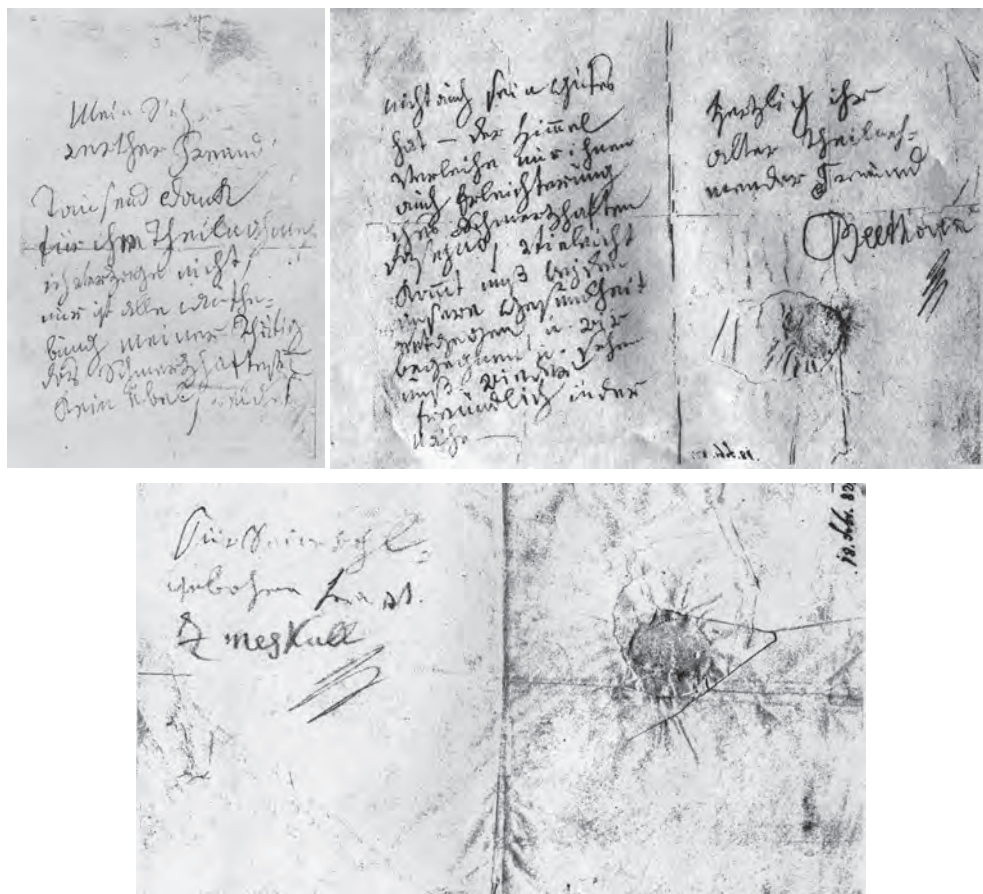 Mein seh
werther Freund!
Tausend Dank
für ihre Theilnahme
ich verzage nicht,
nur ist alle Aufhe-
bung meiner Thätig
das Schmerzhafteste
kein Übel, welches
nicht auch sein Gutes
hat – der Himmel
verleihe nur ihnen
auch Erleichterung
ihres Schmerzhaften
daseyns, vieleicht
kömt unß beyden
unsere Gesundheit
entgegen u. wir
begegnen u. sehen
unß wieder
freundlich in der
nähe –
Herzlich ihr
alter theilneh-
mender Freund
Beethoven
Feb. 82
Für Seine
gebohrn
Zmeskall
18. Feb. 82